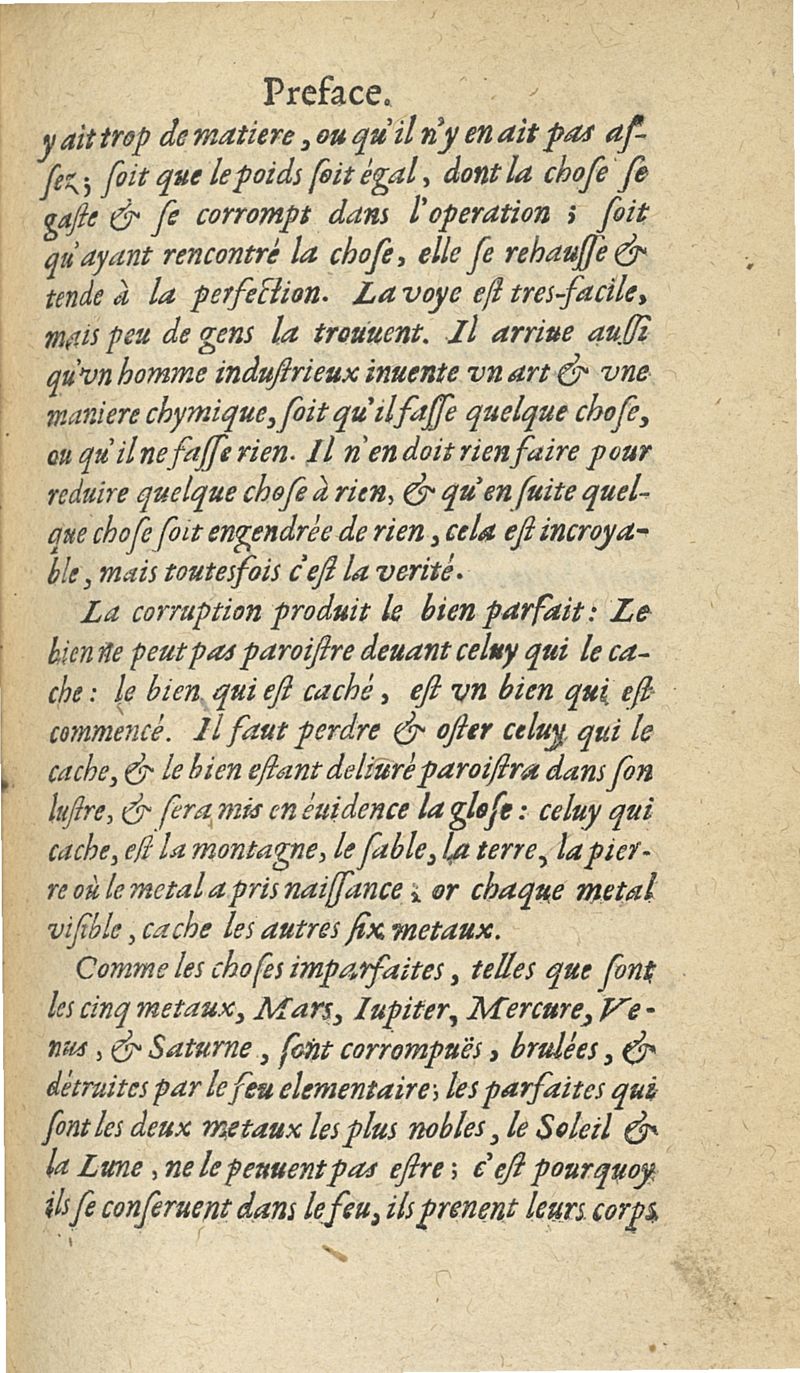 Preface.
y ait trop de matiere, ou qu'il n'y en ait pas aſ-
ſez; ſoit que le poids ſoit égal, dont la choſe ſe
gaſte & ſe corrompt dans l'operation ; ſoit
qu'ayant rencontré la choſe, elle ſe rehauſſe &
tende à la perfection. La voye eſt tres-facile,
mais peu de gens la trouuent. Il arriue auſſi
qu'vn homme induſtrieux inuente vn art & vne
maniere chymique, ſoit qu'il faſſe quelque choſe,
ou qu'il ne faſſe rien. Il n'en doit rien faire pour
reduire quelque choſe à rien, & qu'en ſuite quel-
que choſe ſoit engendrée de rien, cela eſt incroya-
ble, mais toutesfois c'eſt la verité.
La corruption produit le bien parfait: Le
bien ne peut pas paroiſtre deuant celuy qui le ca-
che: le bien qui eſt caché, eſt vn bien qui eſt
commencé. Il faut perdre & oſter celuy qui le
cache, & le bien eſtant deliuré paroiſtra dans ſon
luſtre, & ſera mis en éuidence la gloſe: celuy qui
cache, eſt la montagne, le ſable, la terre, la pier-
re où le metal a pris naiſſance ; or chaque metal
viſible, cache les autres ſix metaux.
Comme les choſes imparfaites, telles que ſont
les cinq metaux, Mars, Iupiter, Mercure, Ve-
nus, & Saturne, ſont corrompuës, brulées, &
détruites par le feu elementaire; les parfaites qui
ſont les deux metaux les plus nobles, le Soleil &
la Lune, ne le peuuent pas eſtre; c'eſt pourquoy
ils ſe conſeruent dans le feu, ils prenent leurs corps